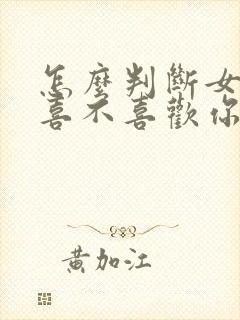 怎麼判斷女
喜不喜歡你
黃加江